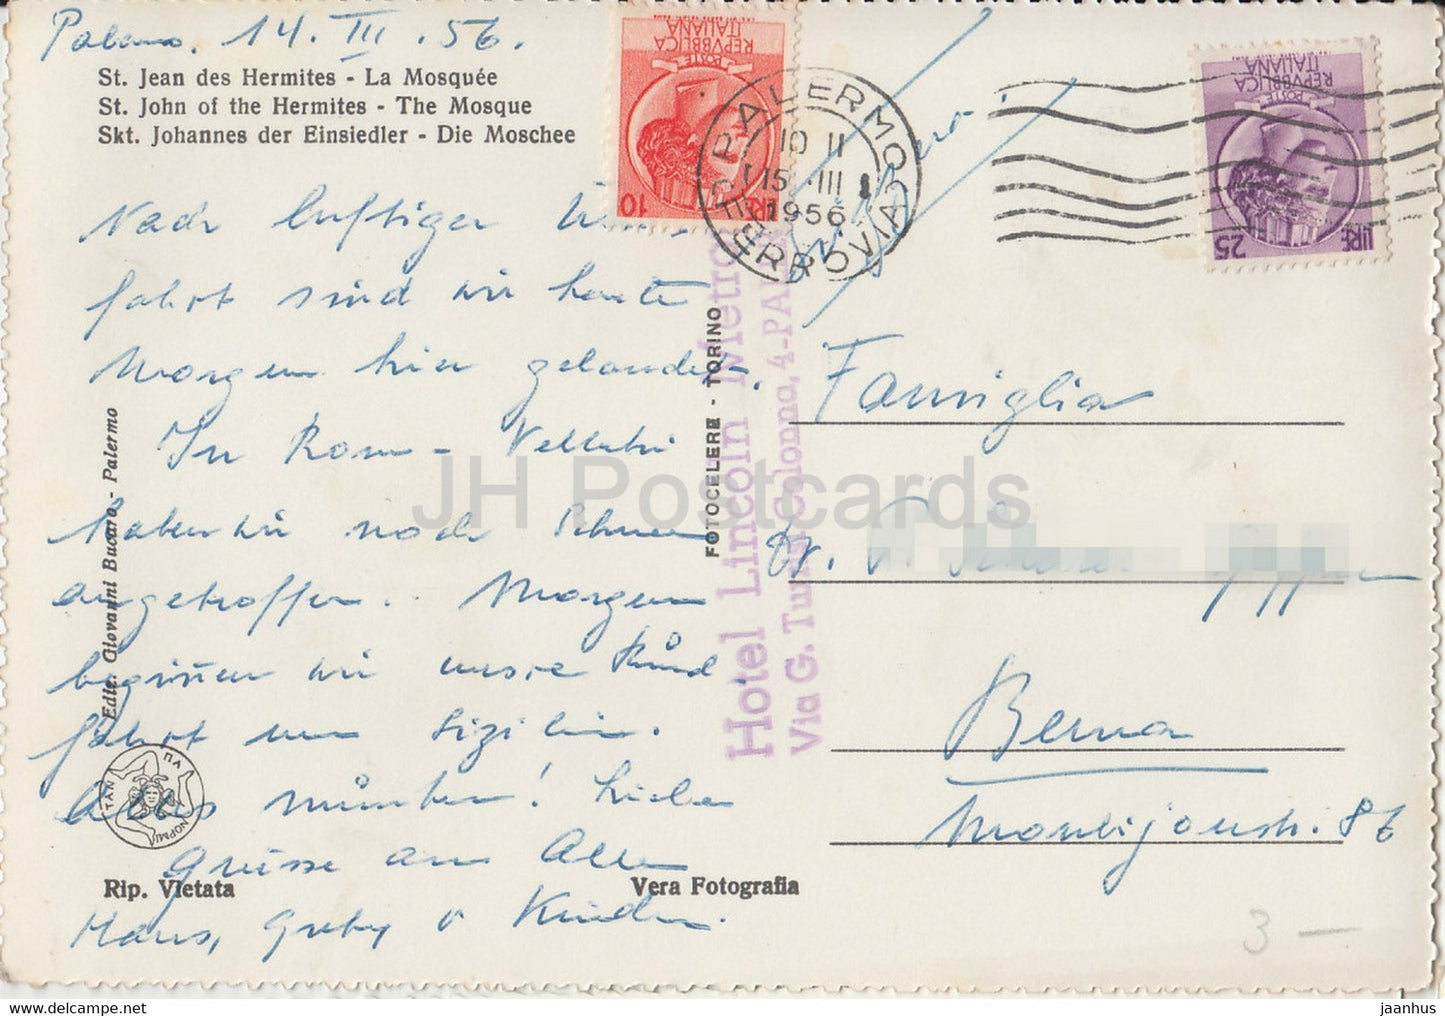 Palermo. 14. III. 56.
St. Jean des Hermites - La Mosquée
St. John of the Hermites - The Mosque
Skt. Johannes der Einsiedler - Die Moschee
Nach luftiger
fahrt sind wir heute
Morgen hier gelandet.
In Rom - Velletri
haben wir noch Schnee
angetroffen. Morgen
beginnen wir unsre Rund-
fahrt um Sizilien.
Alles munter! Liebe
Grüsse an Alle
Hans, Grety & Kinder.
Rip. Vietata
Vera Fotografia
Ediz. Giovanni Bucaro - Palermo
FOTOCELERE - TORINO
Hotel Lincoln Metro
Via G. Turrisi Colonna, 4-PAL
POSTE
REPVBBLICA
ITALIANA
LIRE 10
PALERMO
FERROVIA
10 11
15 .III
1956
POSTE
REPVBBLICA
ITALIANA
LIRE 25
Famiglia
Dr.
Berna
Monbijoustr. 86
3 -
JH Postcards
www.delcampe.net
jaanhus